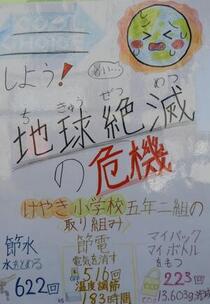 しよう!
暑い…
ち きゅう ぜつ めつ
地球絶滅
の危機
けやき小学校五年二組の
取り組み
節水
水をとめる
622回
節電
電気を消す
516回
温度調節
183時間
マイバック
マイボトル
をもつ
223回
13.603g